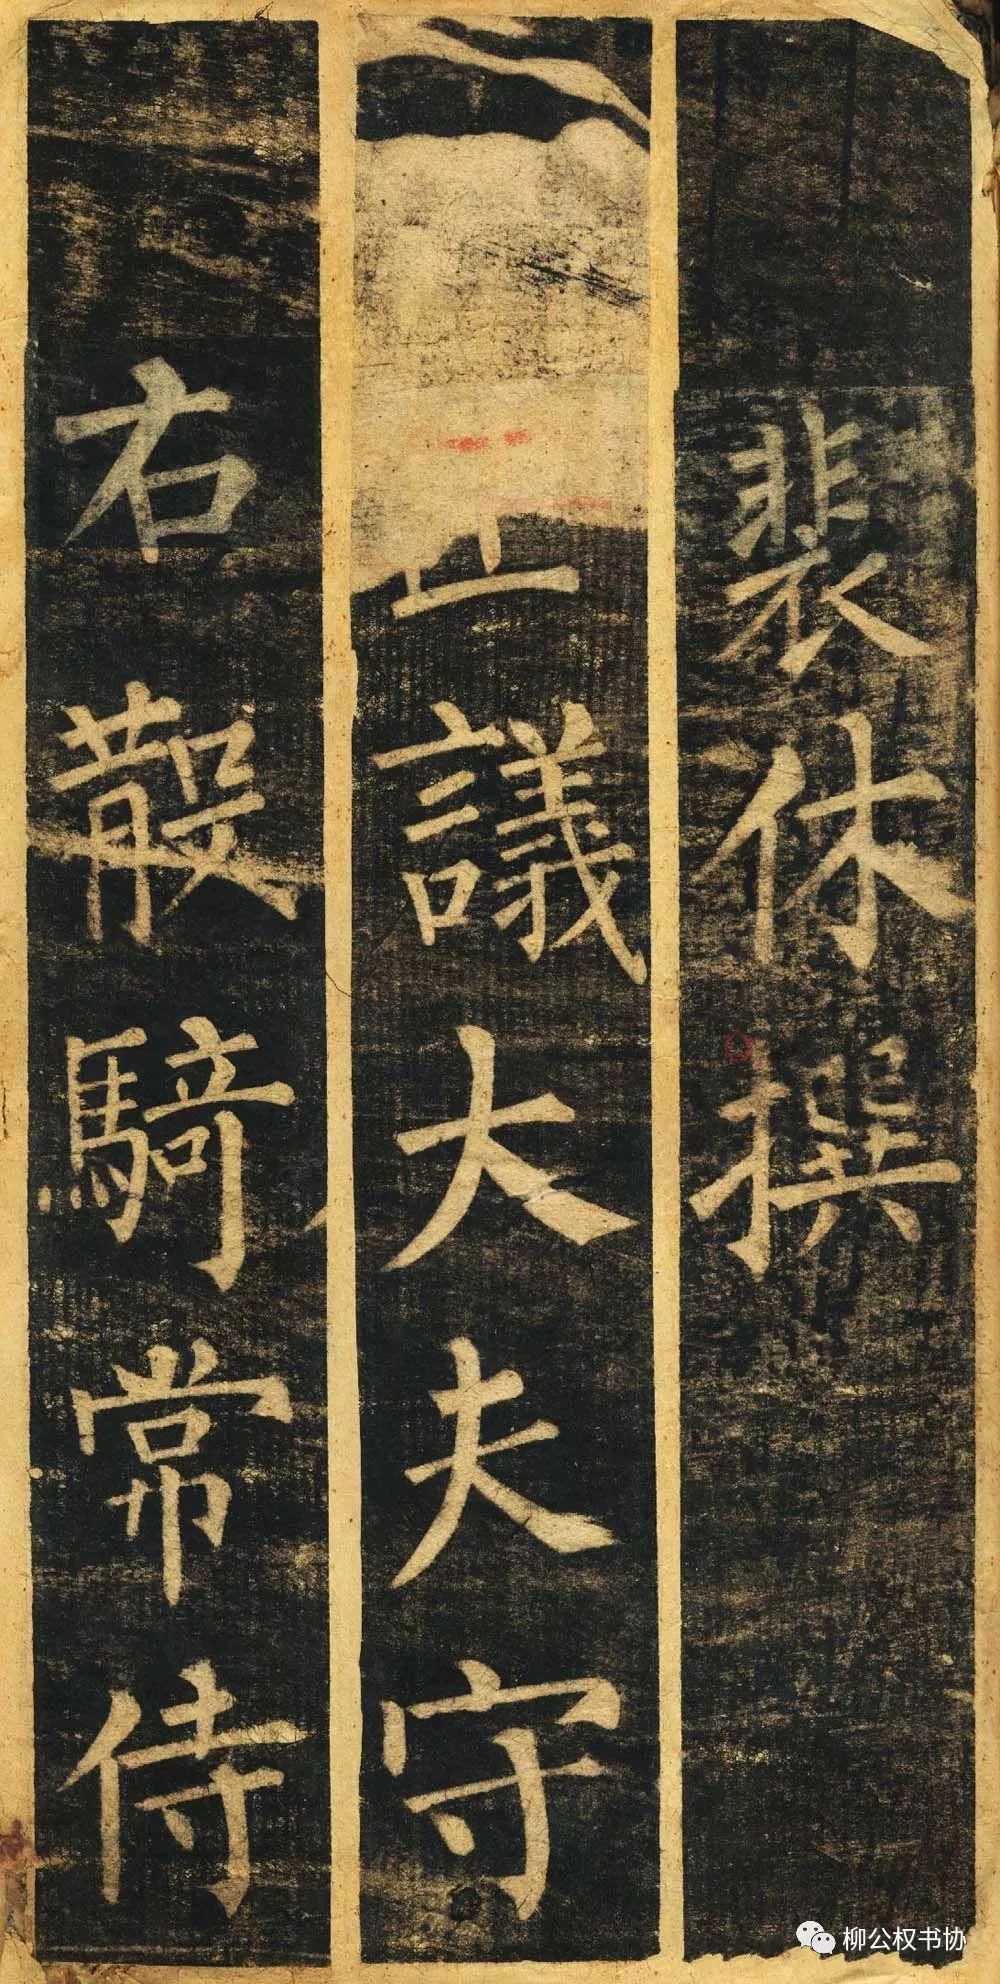 裴休撰
議大夫守
右散騎常侍
柳公权书协